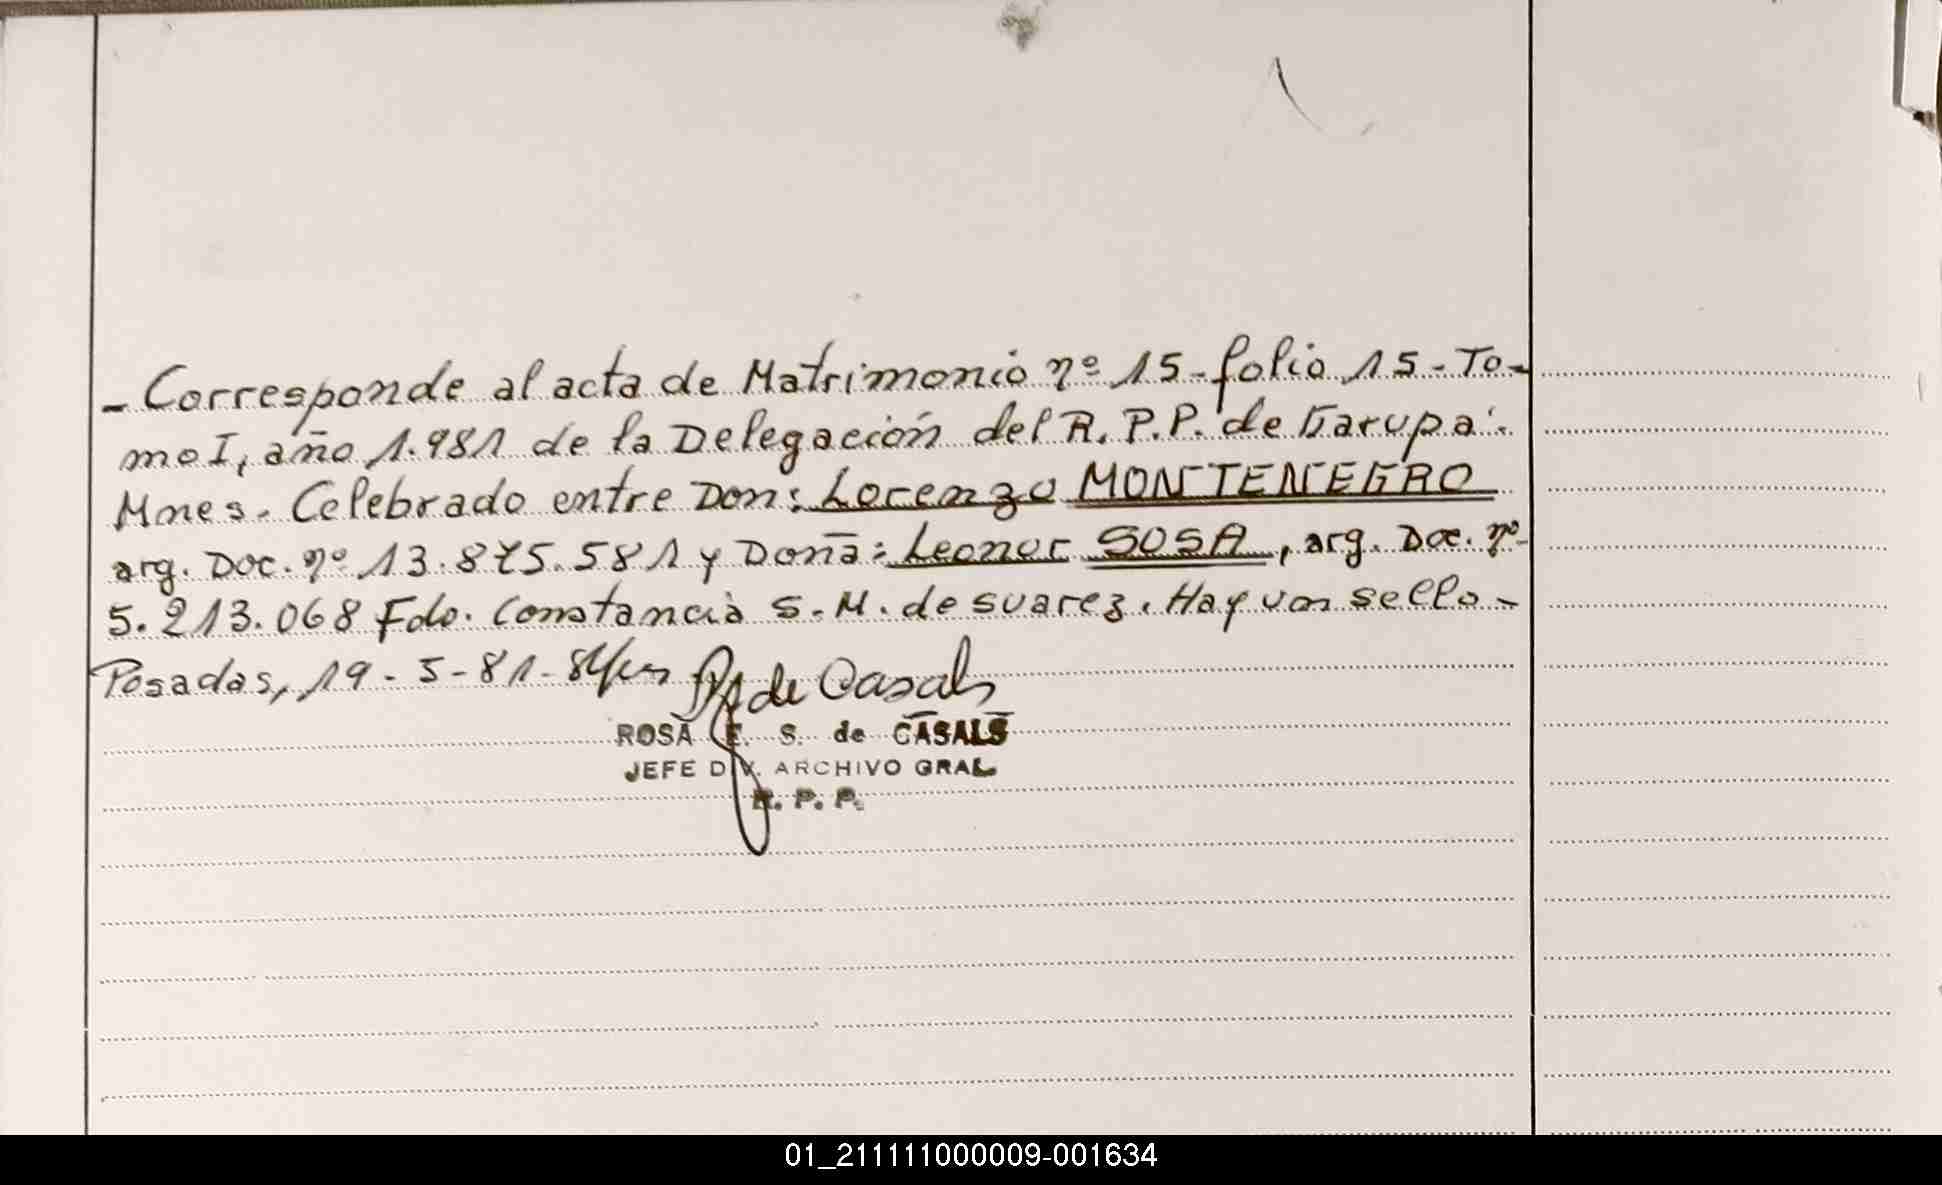 - Corresponde al acta de Matrimonio nº 15 - folio 15 - To-
mo I, año 1.981 de la Delegación del R.P.P. de Garupá.
Mnes. Celebrado entre Don: Lorenzo MONTENEGRO
arg. Doc. nº 13.875.581 y Doña: Leonor SOSA, arg. Doc. nº
5.213.068 Fdo. Constancia S. M. de Suarez. Hay un sello -
Posadas, 19 - 5 - 81 -
de Casals
ROSA E. S. de CASALS
JEFE DIV. ARCHIVO GRAL
R. P. P.
01_211111000009-001634